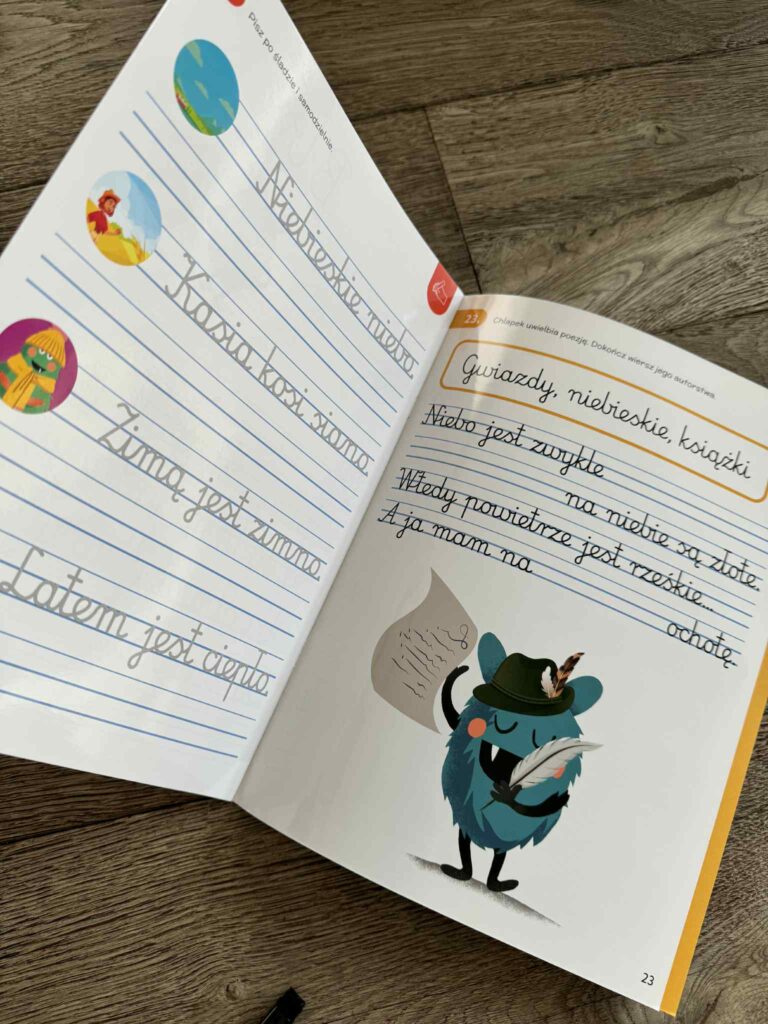 Pisz po śladzie i samodzielnie.
Niebieskie niebo.
Kasia kosi siano.
Zimą jest zimno.
Latem jest ciepło.
23.
Chlapek uwielbia poezję. Dokończ wiersz jego autorstwa.
Gwiazdy, niebieskie, książki
Niebo jest zwykle
na niebie są złote.
Wtedy powietrze jest rześkie...
A ja mam na
ochotę.
23